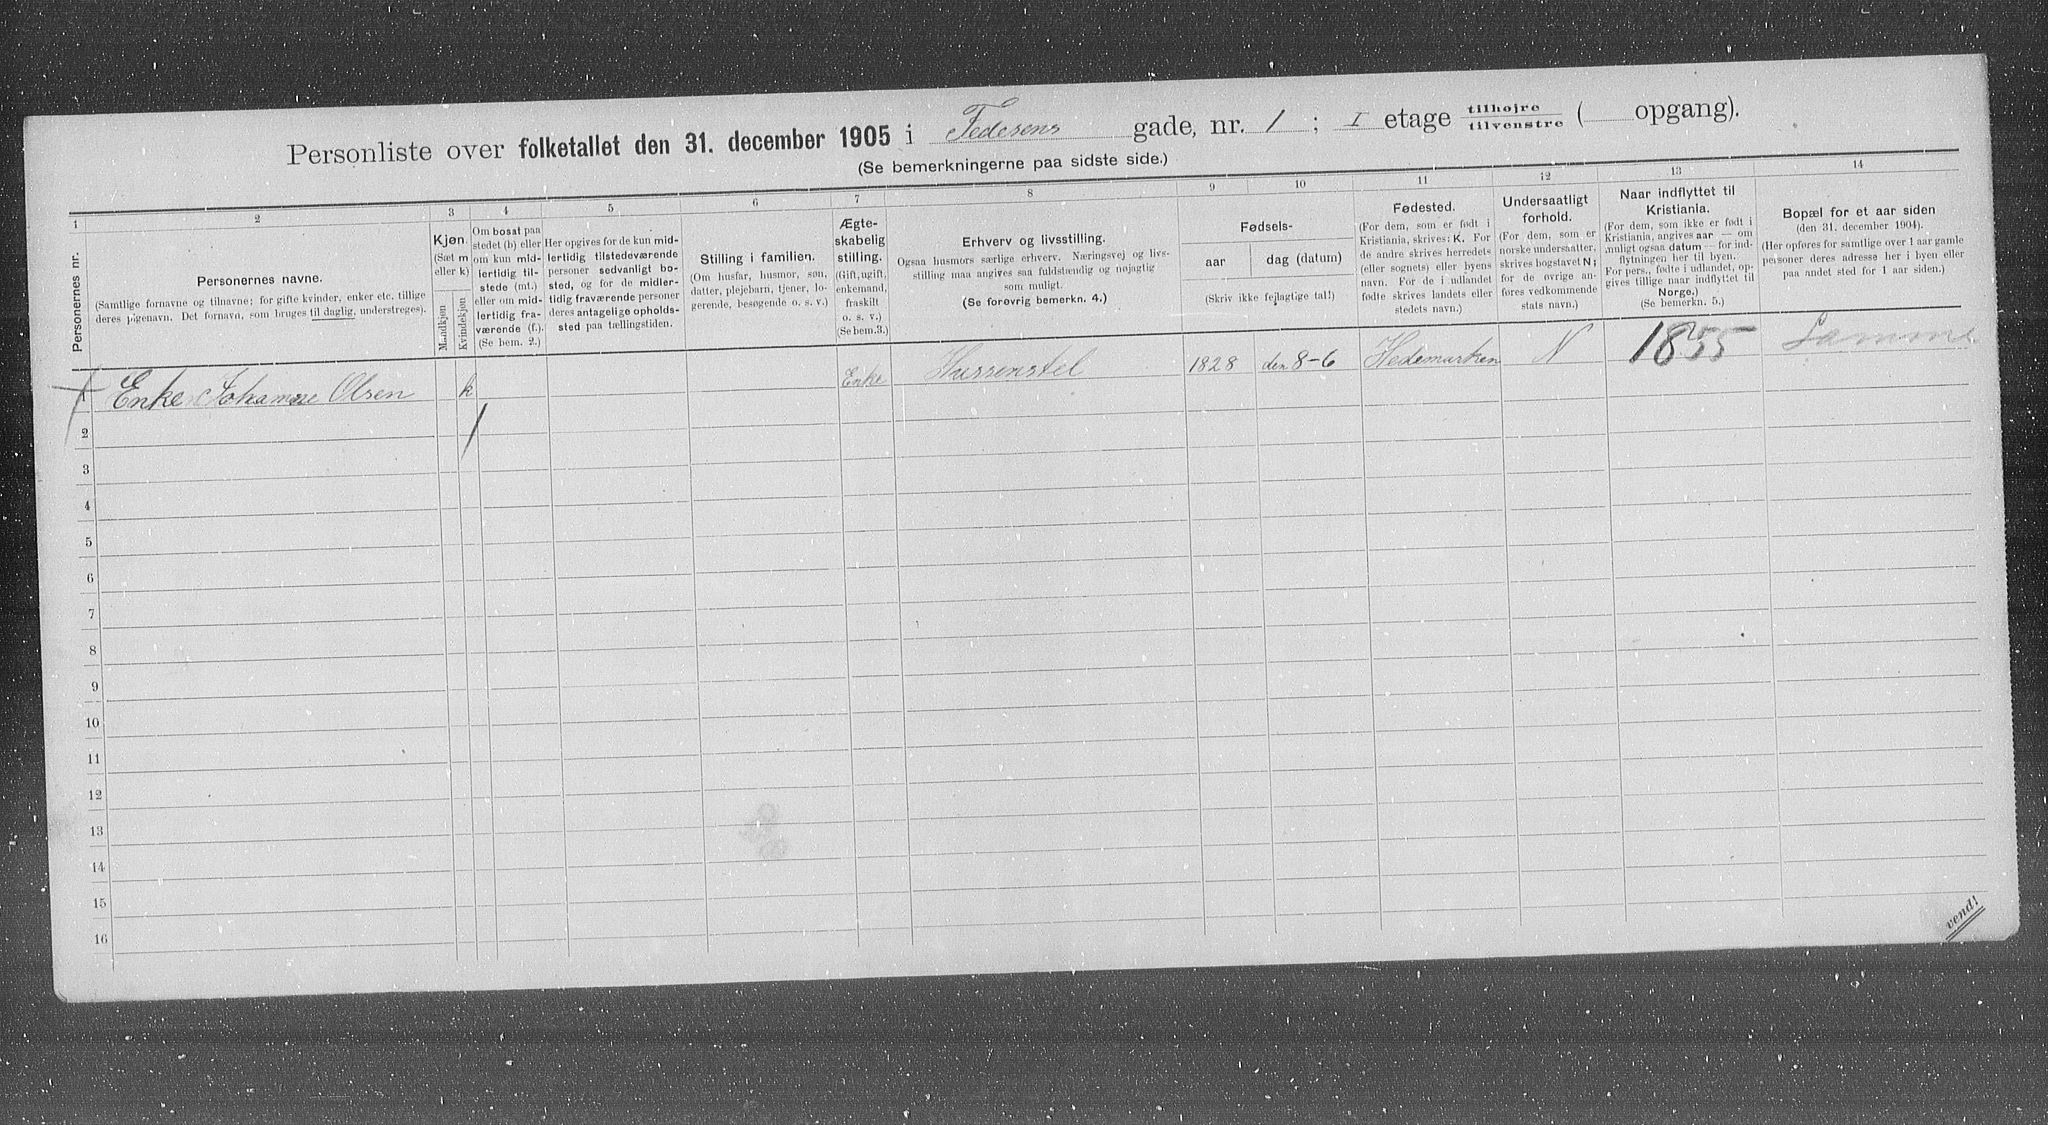 Personliste over folketallet den 31. december 1905 i Fedesens gade, nr. 1 ; I etage tilhøjre / tilvenstre ( opgang).
(Se bemerkningerne paa sidste side.)
1 2 3 4 5 6 7 8 9 10 11 12 13 14
Personernes nr.
Personernes navne.
(Samtlige fornavne og tilnavne; for gifte kvinder, enker etc. tillige
deres pigenavn. Det fornavn, som bruges til daglig, understreges).
Kjøn.
(Sæt m
eller k)
Mandkjøn
Kvindekjøn
Om bosat paa
stedet (b) eller
om kun mid-
lertidig til-
stede (mt.)
eller om mid-
lertidig fra-
værende (f.).
(Se bem. 2.)
Her opgives for de kun mid-
lertidig tilstedeværende
personer sedvanligt bo-
sted, og for de midler-
tidig fraværende personer
deres antagelige opholds-
sted paa tællingstiden.
Stilling i familien.
(Om husfar, husmor, søn,
datter, plejebarn, tjener, lo-
gerende, besøgende o. s. v.)
Ægte-
skabelig
stilling.
(Gift, ugift,
enkemand,
fraskilt
o. s. v.)
(Se bem.3.)
Erhverv og livsstilling.
Ogsaa husmors særlige erhverv. Næringsvej og livs-
stilling maa angives saa fuldstændig og nøjagtig
som muligt.
(Se forøvrig bemerkn. 4.)
Fødsels-
aar
dag (datum)
(Skriv ikke fejlagtige tal!)
Fødested.
(For dem, som er født i
Kristiania, skrives: K. For
de andre skrives herredets
(eller sognets) eller byens
navn. For de i udlandet
fødte skrives landets eller
stedets navn.)
Undersaatligt
forhold.
(For dem, som er
norske undersaatter,
skrives bogstavet N;
for de øvrige an-
føres vedkommende
stats navn.)
Naar indflyttet til
Kristiania.
(For dem, som ikke er født i
Kristiania, angives aar — om
muligt ogsaa datum — for ind-
flytningen her til byen.
For pers., fødte i udlandet, op-
gives tillige naar indflyttet til
Norge.)
(Se bemerkn. 5.)
Bopæl for et aar siden
(den 31. december 1904).
(Her opføres for samtlige over 1 aar gamle
personer deres adresse her i byen eller
paa andet sted for 1 aar siden.)
1 Enke Johanne Olsen k Enke 1828 den 8-6 Hedemarken N 1855 Samme
2
3
4
5
6
7
8
9
10
11
12
13
14
15
16
vend!